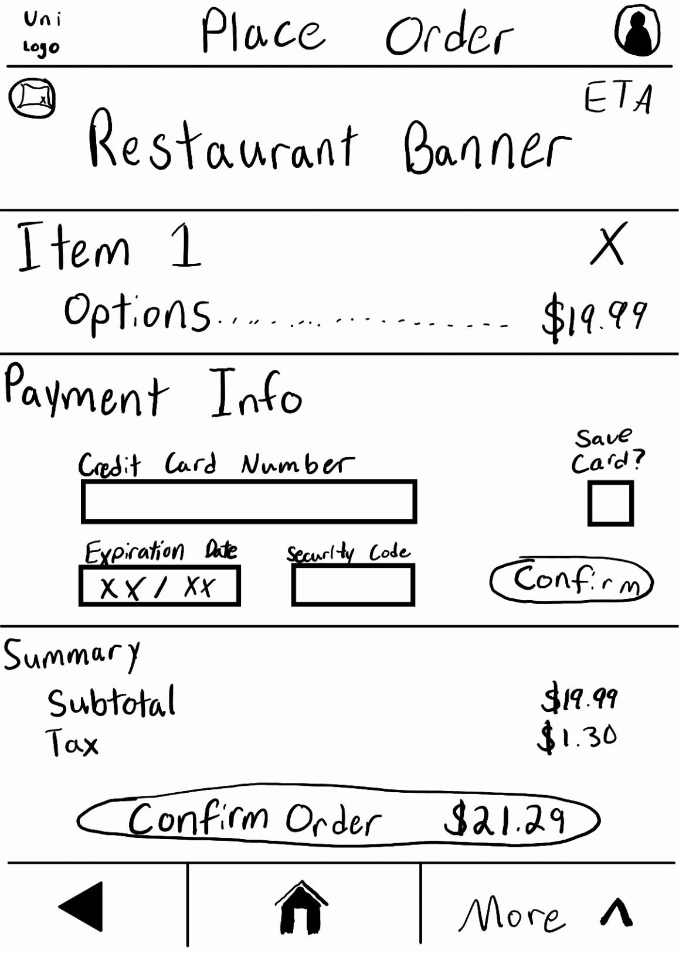 Uni
Logo
Place Order
ETA
Restaurant Banner
Item 1 X
Options..................... $19.99
Payment Info
Save
Card?
Credit Card Number
Expiration Date Security Code
XX/XX
Confirm
Summary
Subtotal $19.99
Tax $1.30
Confirm Order $21.29
More ^